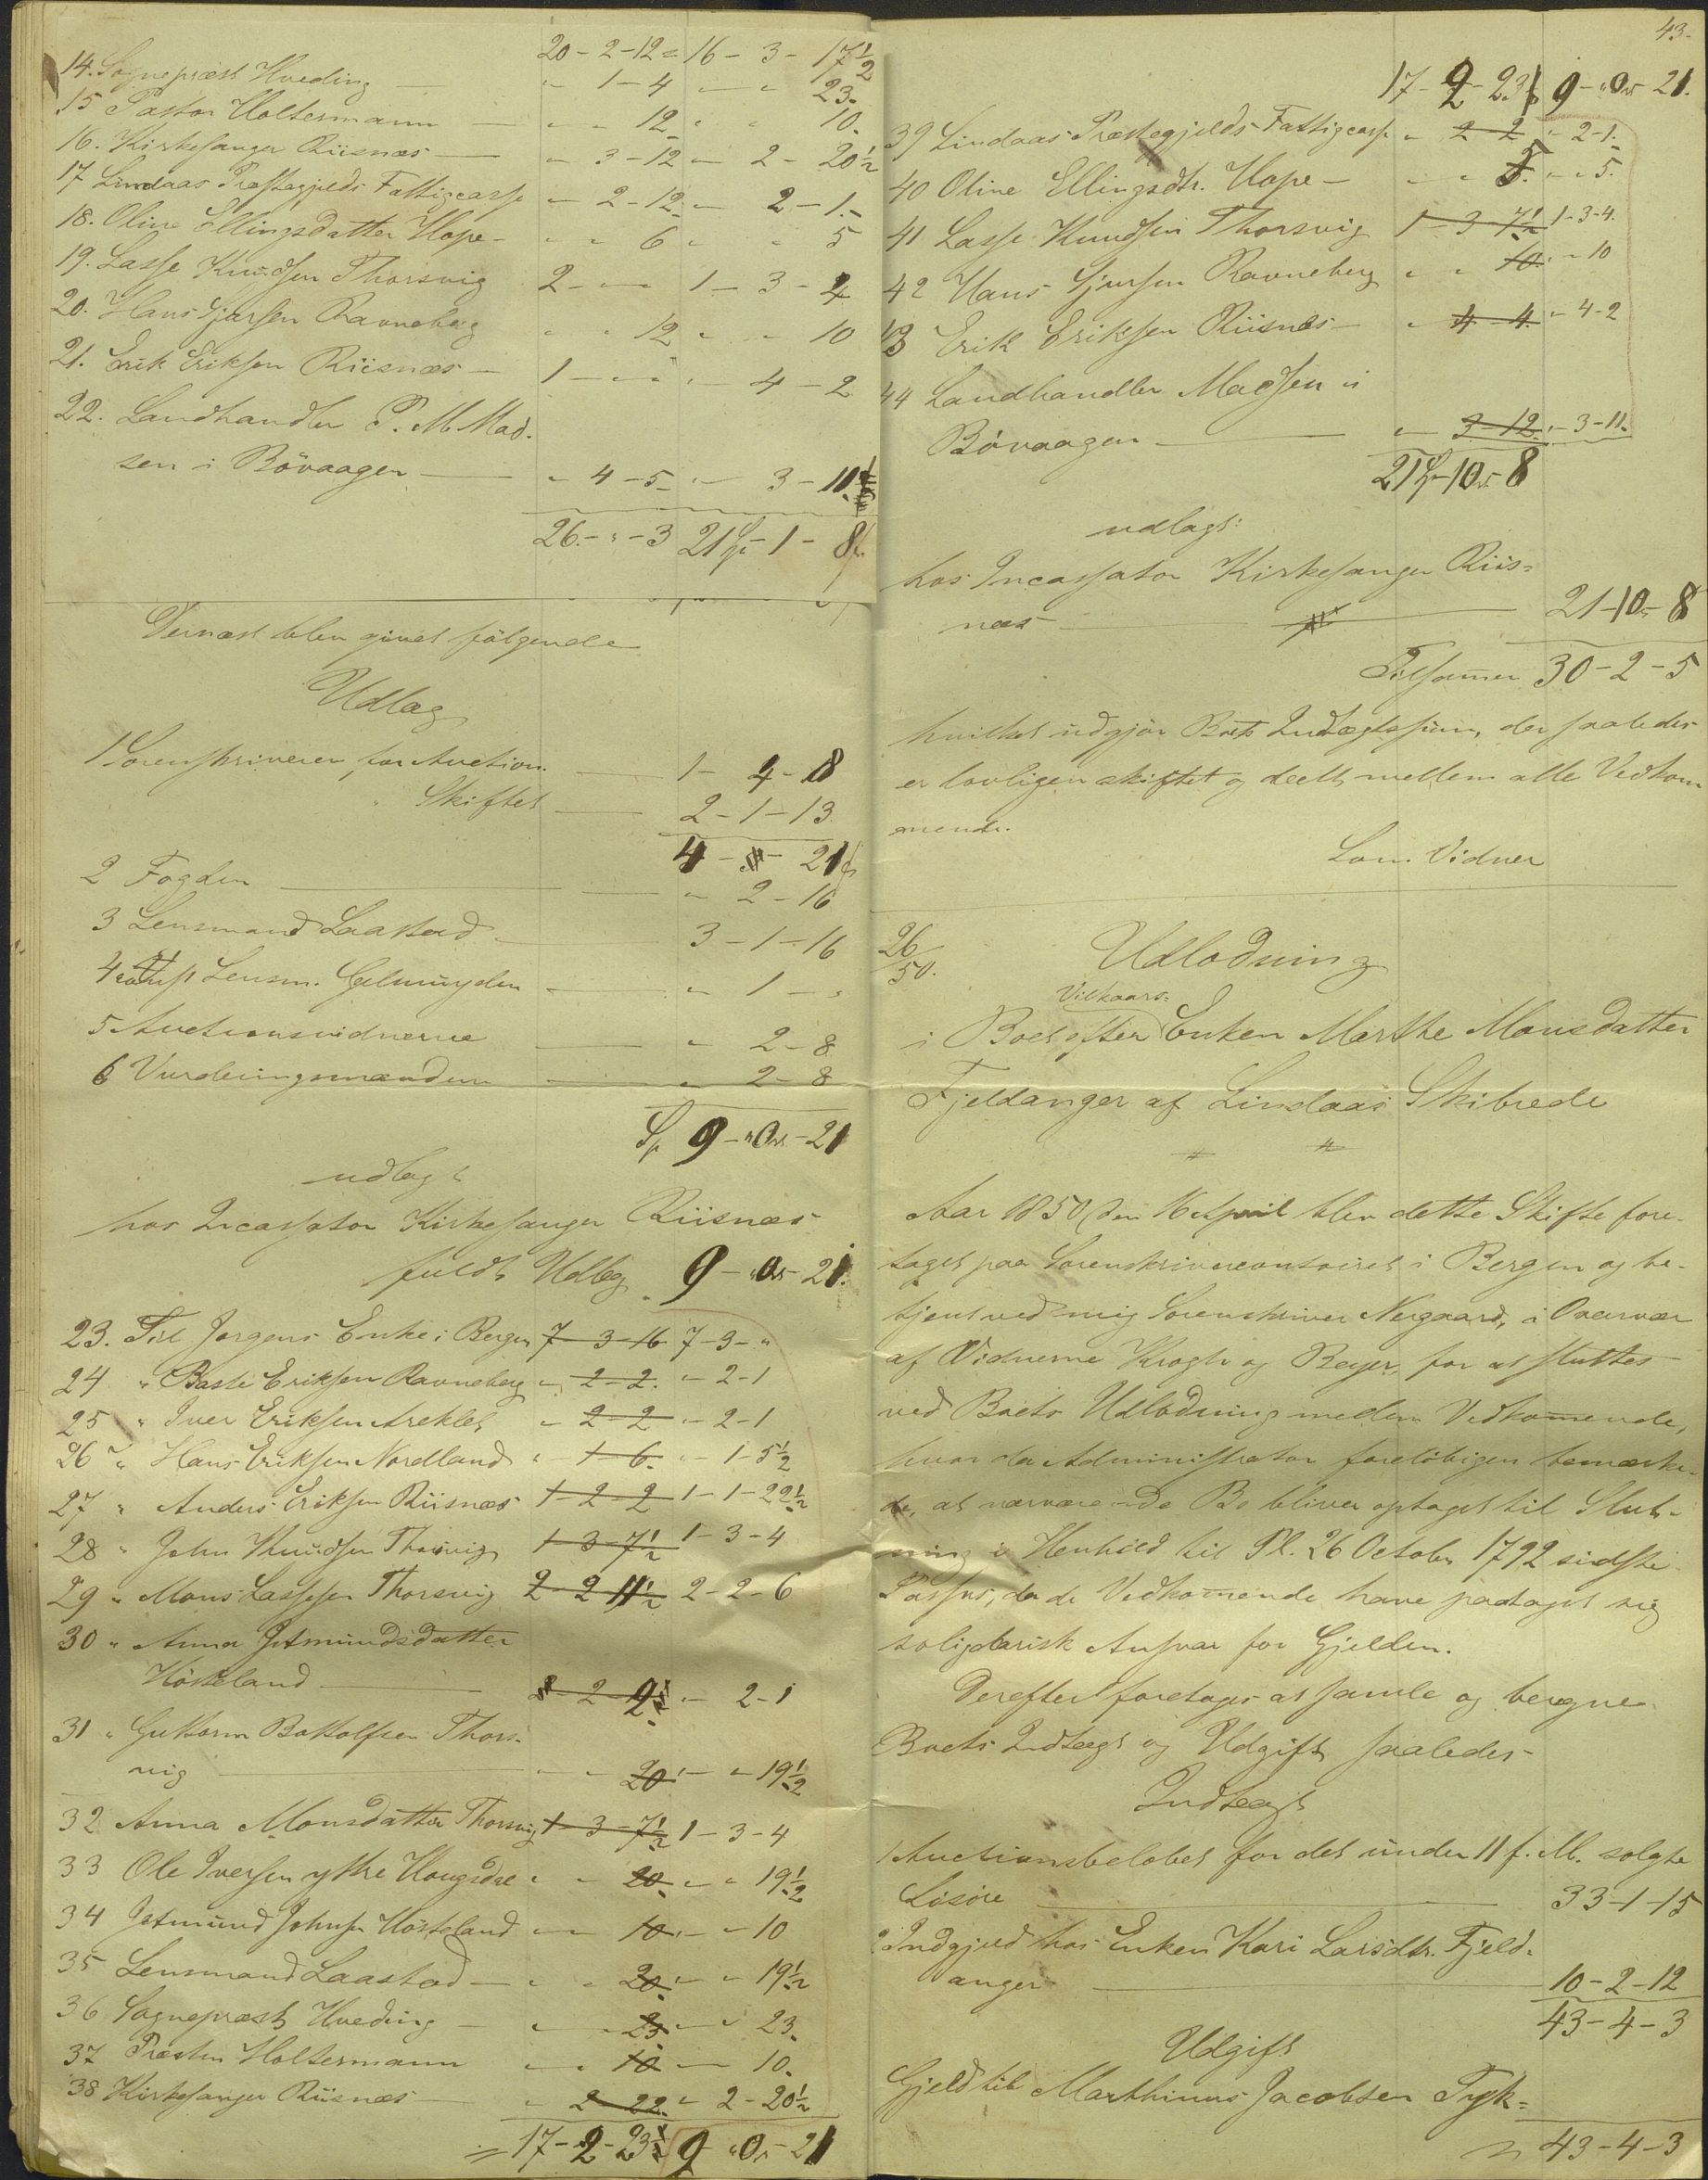 20-2-12 16-3-17½
14. Sognepræst Hveding " 1-4 " " 23.
15 Pastor Holtermann " " 12 " " 10.
16. Kirkesanger Riisnæs " 3-12 " 2-20½
17 Lindaas Præstegjelds Fattigcasse " 2-12 " 2-1.
18. Oline Ellingsdatter Hope " " 6 " " 5
19. Lasse Knudsen Thorsvig 2 - " - " 1-3-4
20. Hans Gjersen Ravneberg " " 12 " " 10
21. Erik Eriksen Riisnæs 1 - " - " " 4-2
22. Landhandler P. M. Mad-
sen i Bövaagen " 4-5 " 3-11
26 - " - 3 21 Sp 1 - 8
Dernæst blev givet fölgende
Udlæg
1 Sorenskriveren, for Auction 1-4-8
" Skiftet 2-1-13.
4 - " - 21
2 Fogden " 2-16
3 Lensmand Laastad 3-1-16
4 const Lensm. Gelmuyden " 1 - "
5 Auctionsvidnerne " 2-8
6 Vurderingsmændene " 2-8
Sp 9 - "Ort - 21
udlagt
hos Incassator Kirkesanger Riisnæs
fuldt Udlæg 9 - "Ort - 21.
23. Til Jorgens Enke i Bergen 7-3-16 7-3-"
24 " Baste Eriksen Ravneberg " 2-2. " 2-1
25 " Iver Eriksen Areklet " 2-2 " 2-1
26 " Hans Eriksen Nordland " 1-6 " 1-5½
27 " Anders Eriksen Riisnæs 1-2-2 1-1-22½
28 " John Knudsen Thorsvig 1-3-7½ 1-3-4
29 " Mons Lassesen Thorsvig 2-2-11½ 2-2-6
30 " Anna Jetmundsdatter
Hösteland " 2-2½ " 2-1
31 " Guttorm Bottolfsen Thors-
vig " " 20 " " 19½
32 Anna Monsdatter Thorsvig 1-3-7½ 1-3-4
33 Ole Iversen yttre Hougsdal " " 20 " " 19½
34 Jetmund Johnsen Hösteland " " 10 " " 10
35 Lensmand Laastad " " 20 " " 19½
36 Sognepræst Hveding " " 23 " " 23.
37 Præsten Holtermann " " 10 " " 10.
38 Kirkesanger Riisnæs " 2-22 " 2-20½
17-2-23½ 9 - "Ort - 21
43.
17-2-23½ 9 - "Ort - 21.
39 Lindaas Præstegjelds Fattigcasse " 2-2 " 2-1.
40 Oline Ellingsdtr. Hope " " 5. " " 5.
41 Lasse Knudsen Thorsvig 1-3-7½ 1-3-4.
42 Hans Gjersen Ravneberg " " 10. " " 10
43 Erik Eriksen Riisnæs " 4-4 " 4-2
44 Landhandler Madsen i
Bövaagen " 3-12 " 3-11.
21 Sp - 1 Ort - 8
udlagt:
hos Incassator Kirkesanger Riis-
næs 21-1 Ort-8
Tilsammen 30-2-5
hvilket udgjör Boets Indtægtssum, der saaledes
er lovligen skiftet og deelt mellem alle Vedkom-
mende.
Som Vidner
26/50.
Udlodning
i Boet efter Vilkaars- Enken Marthe Monsdatter
Fjeldanger af Lindaas Skibrede
Aar 1850 den 16 April blev dette Skifte fore-
taget paa Sorenskrivercontoiret i Bergen og be-
tjent ved mig Sorenskriver Nergaard, i Overvær
af Vidnerne Krogh og Beyer, for at sluttes
ved Boets Udlodning mellem Vedkommende,
hvor da Administrator forelöbigen bemærke-
de, at nærværende Bo bliver optaget til Slut-
ning i Henhold til Pl. 26 October 1792 sidste
Passus, da de Vedkommende have paataget sig
solidarisk Ansvar for Gjelden.
Derefter foretages at samle og beregne
Boets Indtægt og Udgift saaledes
Indtægt
1 Auctionsbelöbet for det under 11 f. M. solgte
Lösöre 33-1-15
2 Indgjeld hos Enken Kari Larsdtr. Fjeld-
anger 10-2-12
43-4-3
Udgift
Gjeld til Marthinus Jacobsen Tyk-
43-4-3